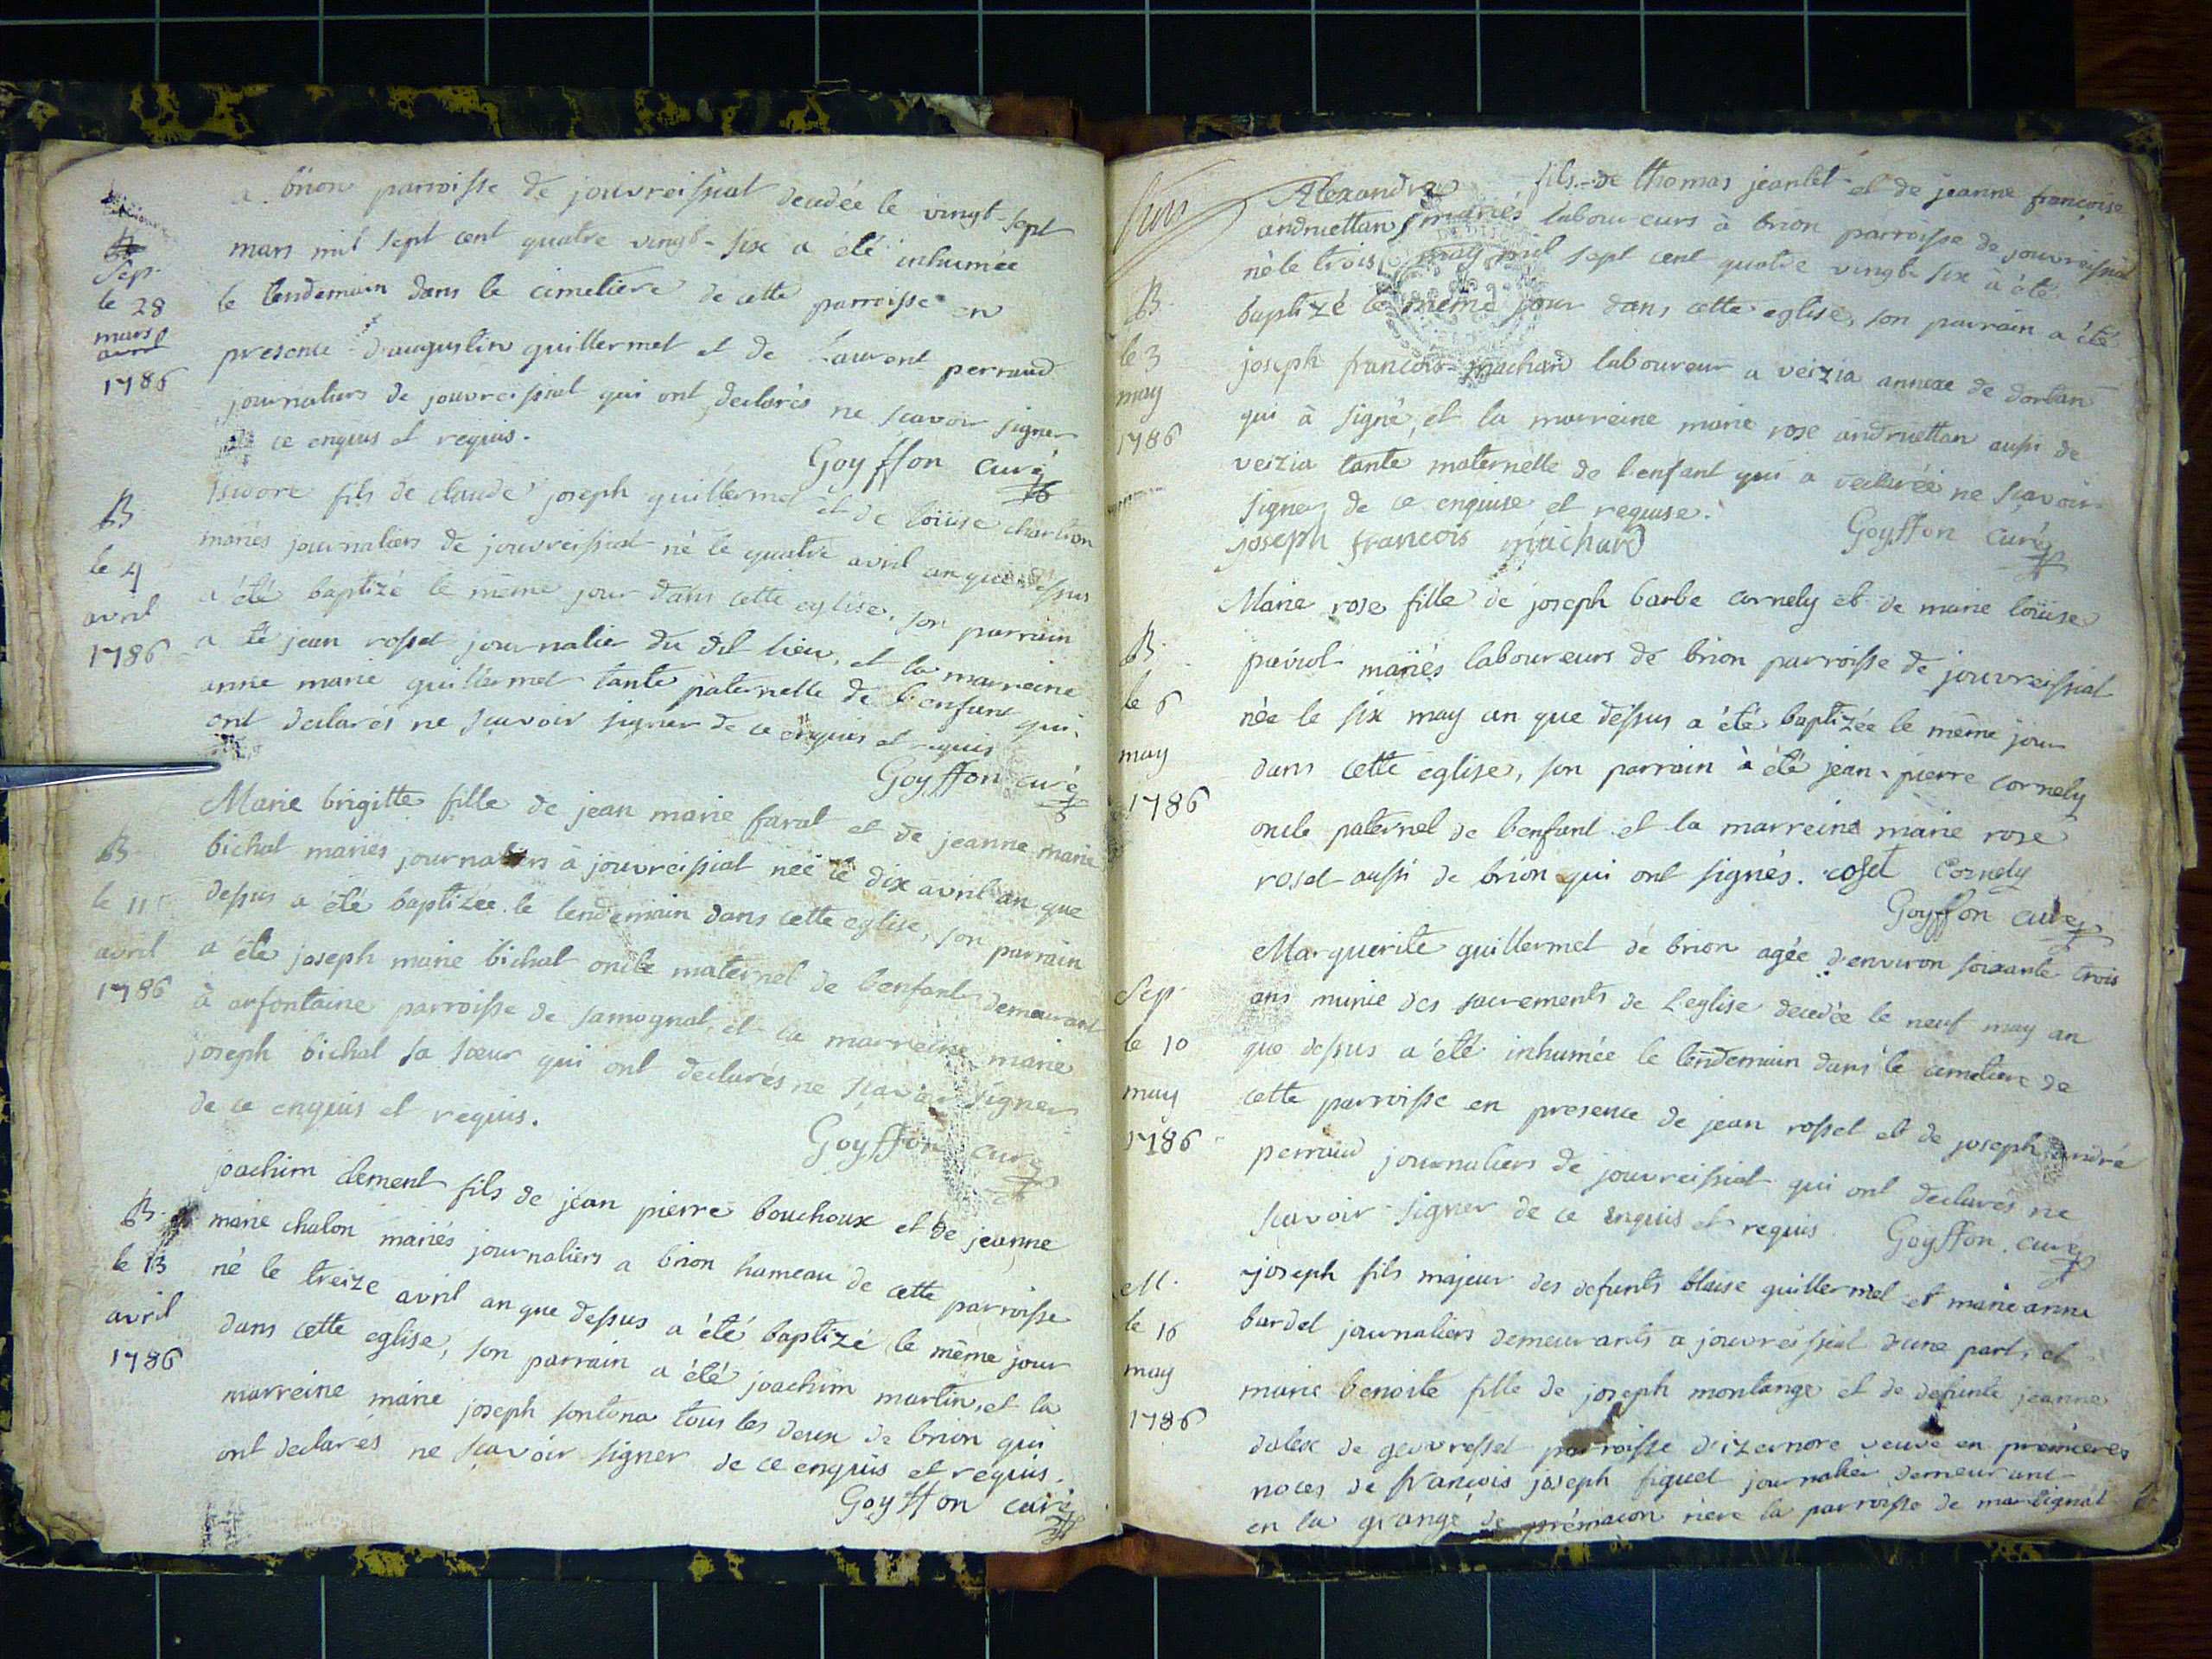 a brion parroisse de jouvreissiat decedée le vingt-sept
Sep.
mars mil sept cent quatre vingt-six a été inhumée
le 28
le lendemain dans le cimetiere de cette parroisse en
mars
avril
presence d'augustin guillermet et de Laurent perraud
1786
journaliers de jouvreissiat qui ont declarés ne scavoir signer
de ce enquis et requis.
Goyffon curé
B.
isidore fils de claude joseph guillermet et de loüise charlion
mariés journaliers de jouvreissiat né le quatre avril an que dessus
le 4
a été baptizé le même jour dans cette eglise, son parrain
avril
a été jean rosset journalier du dit lieu, et la marreine
1786
anne marie guillermet tante paternelle de l'enfant qui
ont declarés ne scavoir signer de ce enquis et requis
Goyffon curé
Marie brigitte fille de jean marie farat et de jeanne marie
B.
bichat mariés journaliers à jouvreissiat née le dix avril an que
le 11
dessus a été baptizée le lendemain dans cette eglise, son parrain
avril
a été joseph marie bichat oncle maternel de l'enfant demeurant
1786
à arfontaine parroisse de samognat, et la marreine marie
joseph bichat sa sœur qui ont declarés ne scavoir signer
de ce enquis et requis.
Goyffon curé
joachim clement fils de jean pierre bouchoux et de jeanne
B.
marie chalon mariés journaliers a brion hameau de cette parroisse
le 13
né le treize avril an que dessus a été baptizé le même jour
avril
dans cette eglise, son parrain a été joachim martin, et la
1786
marreine marie joseph sontona tous les deux de brion qui
ont declarés ne scavoir signer de ce enquis et requis.
Goyffon curé
Alexandre fils de thomas jeantet et de jeanne françoise
andruettan mariés laboureurs à brion parroisse de jouvreissiat
né le trois may mil sept cent quatre vingt six à été
B.
baptizé le même jour dans cette eglise, son parrain a été
le 3
joseph francois machard laboureur a veizia annexe de dortan
may
qui à signé, et la marreine marie rose andruettan aussi de
1786
veizia tante maternelle de l'enfant qui a declarée ne scavoir
signer de ce enquise et requise.
joseph francois machard
Goyffon curé
Marie rose fille de joseph barbe cornely et de marie loüise
B.
paviot mariés laboureurs de brion parroisse de jouvreissiat
le 6
née le six may an que dessus a été baptizée le même jour
may
dans cette eglise, son parrain à été jean-pierre cornely
1786
oncle paternel de l'enfant et la marreine marie rose
roset aussi de brion qui ont signés. roset Cornely
Goyffon curé
Marguerite guillermet de brion agée d'environ soixante trois
Sep.
ans munie des sacrements de L'eglise decedée le neuf may an
le 10
que dessus a été inhumée le lendemain dans le cimetiere de
may
cette parroisse en presence de jean rosset et de joseph andré
1786
perraud journaliers de jouvreissiat qui ont declarés ne
scavoir signer de ce enquis et requis Goyffon curé
M.
joseph fils majeur des defunts blaise guillermet et marie anne
le 16
bardet journaliers demeurants a jouvreissiat d'une part, et
may
marie benoite fille de joseph montange et de defunte jeanne
1786
dalex de geovresset parroisse d'izernore veuve en premieres
noces de francois joseph figuet journalier demeurant
en la grange de prémacon riere la parroisse de martignat